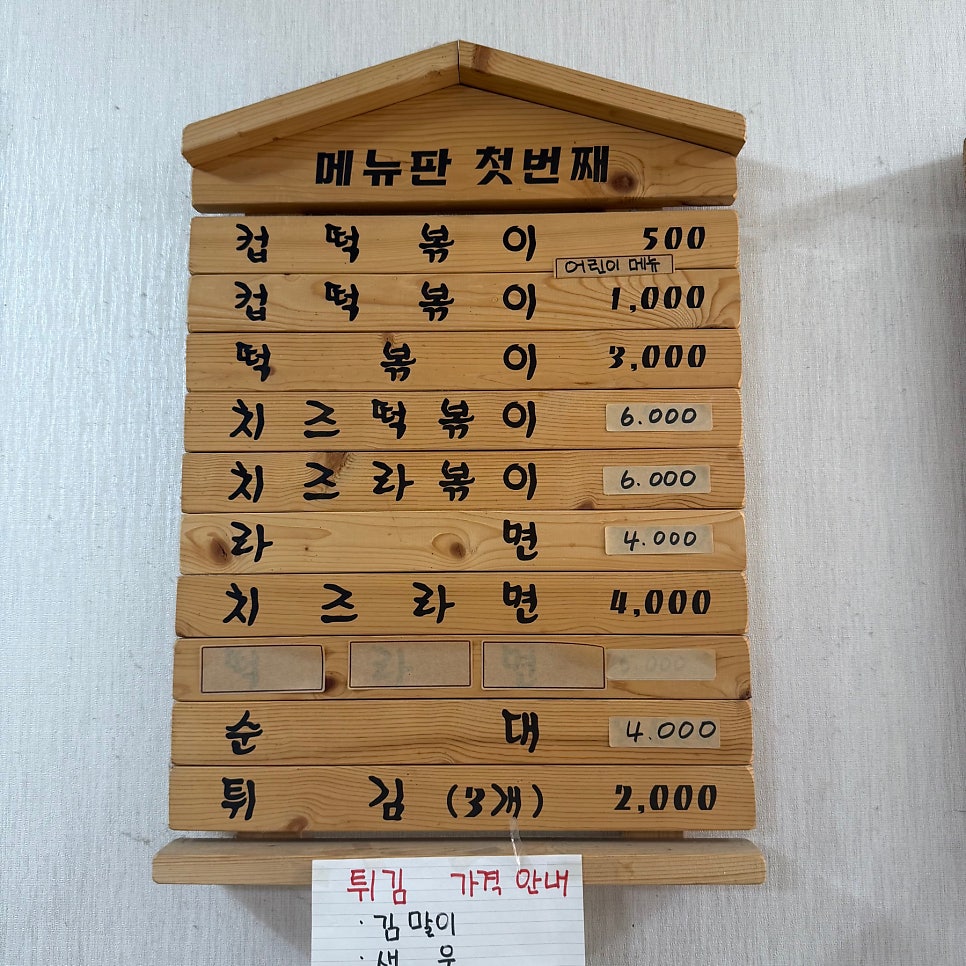 메뉴판 첫번째
컵떡볶이 500
어린이 메뉴
컵떡볶이 1,000
떡볶이 3,000
치즈떡볶이 6.000
치즈라볶이 6.000
라면 4.000
치즈라면 4,000
떡라면
순대 4.000
튀김(3개) 2,000
튀김 가격 안내
· 김말이
· 새우